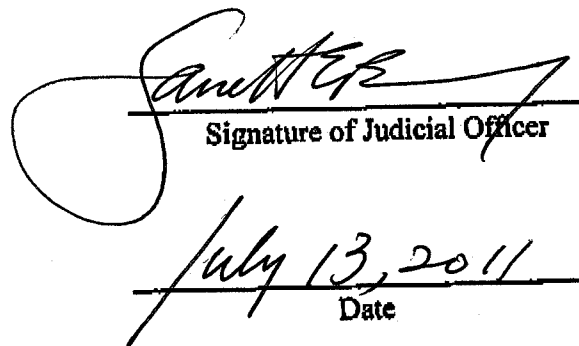 Signature of Judicial Officer
July 13, 2011
Date